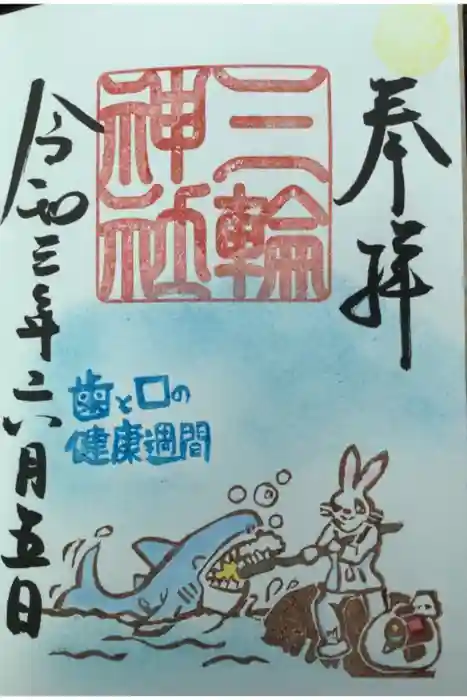 奉拝
三輪
神社
令和三年六月五日
歯と口の
健康週間